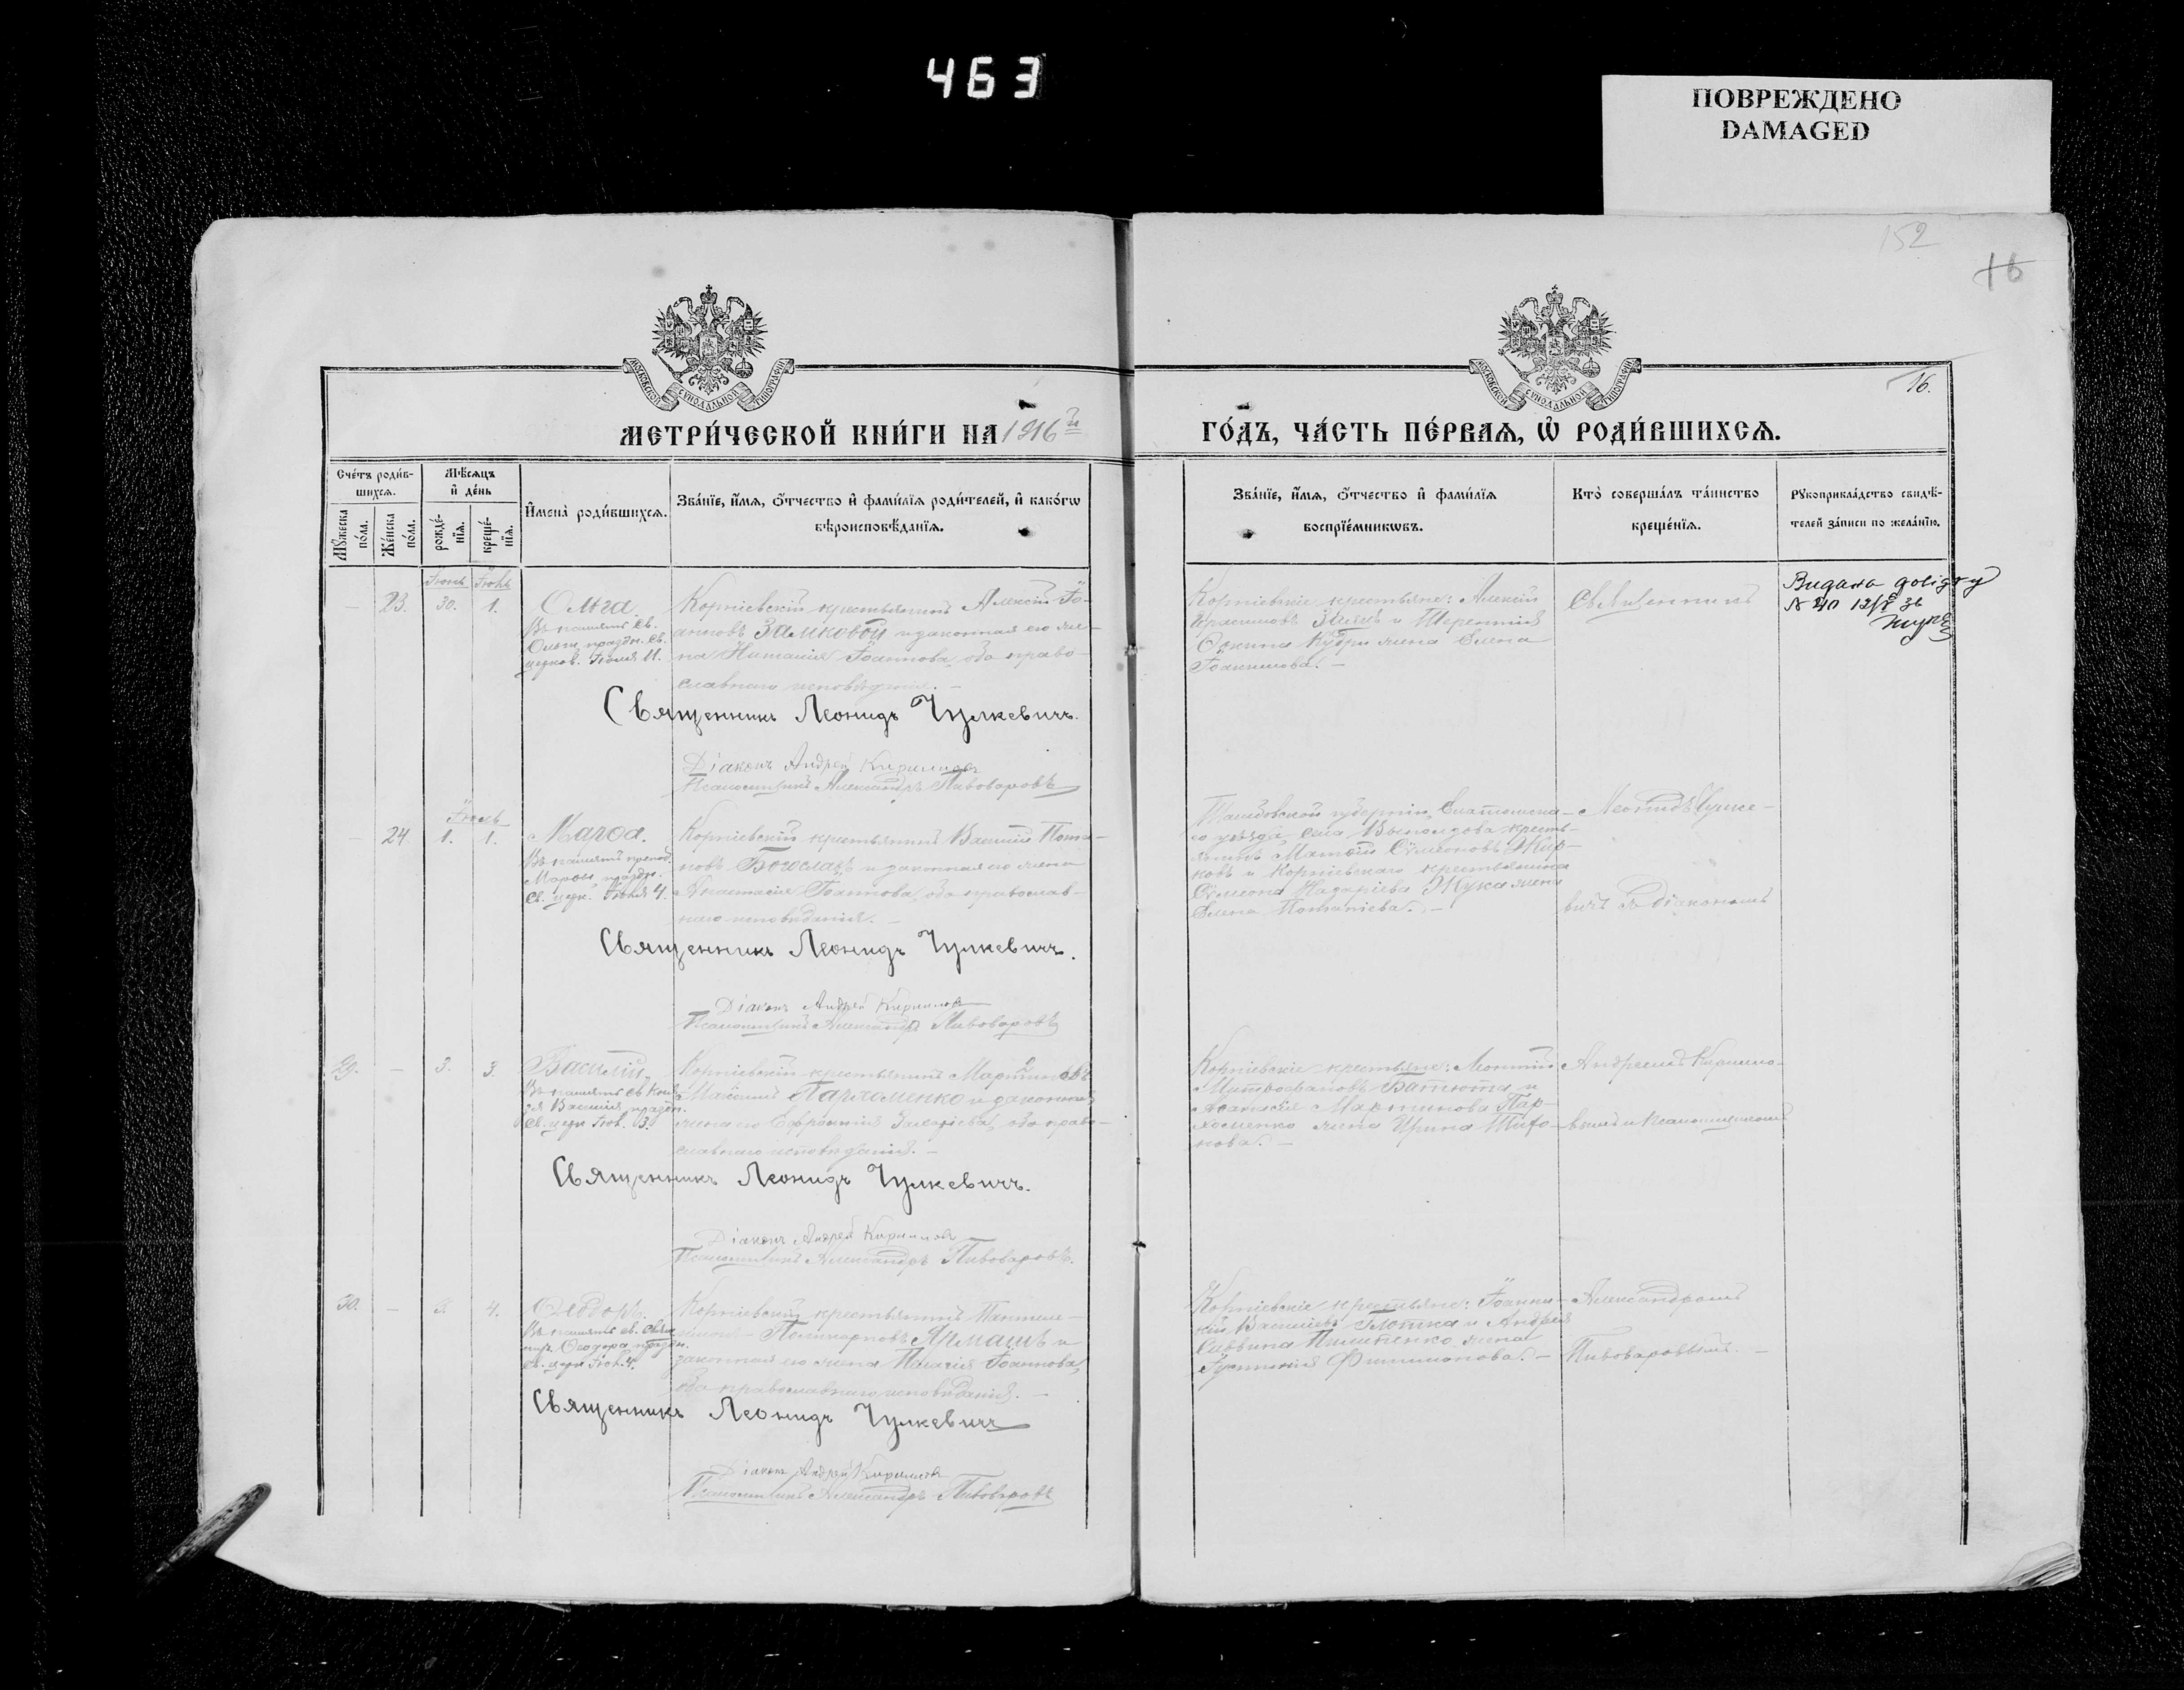 463
ПОВРЕЖДЕНО
DAMAGED
152
16
МОСКОВСКОЙ СУНОДАЛЬНОЙ ТИПОГРАФІИ
МОСКОВСКОЙ СУНОДАЛЬНОЙ ТИПОГРАФІИ
16.
МЕТРИ́ЧЕСКОЙ КНИ́ГИ НА 1916й
ГО́ДЪ, ЧА́СТЬ ПЕ́РВАѦ, Ѡ҆ РОДИ́ВШИХСѦ.
Сче́тъ роди́в-
шихсѧ.
Мꙋ́жеска
по́ла.
Же́нска
по́ла.
Мѣ́сѧцъ
и҆ де́нь
рожде́-
нїѧ.
креще́-
нїѧ.
И҆мена̀ роди́вшихсѧ.
Зва́нїе, и҆́мѧ, ѻ҆́тчество и҆ фами́лїѧ роди́телей, и҆ како́гѡ
вѣроисповѣ́данїѧ.
Зва́нїе, и҆́мѧ, ѻ҆́тчество и҆ фами́лїѧ
воспрїе́мникѡвъ.
Кто̀ соверша́лъ та́инство
креще́нїѧ.
Рꙋкоприкла́дство свидѣ́-
телей за́писи по жела́нїю.
Іюнь Іюль
— 23. 30. 1.
Ольга.
Въ память св.
Ольги, праздн. св.
церков. Іюля 11.
Корніевскій крестьянинъ Алексій Іо-
анновъ Замковой и законная его же-
на Наталія Іоаннова, оба право-
славнаго исповѣданія. —
Корніевскіе крестьяне: Алексій
и Терентія
Кудри жена Елена
Іоакимова. —
Священникъ
Видана довідку
№ 240
Священникъ Леонидъ Чулкевичъ.
Діаконъ Андрей Кириловъ
Псаломщикъ Александръ Пивоваровъ
Іюль
— 24. 1. 1.
Марѳа.
Въ память препод.
Марѳы, праздн.
св. церк. Іюля 4.
Корніевскій крестьянинъ Василій Пота-
повъ Богославъ и законная его жена
Анастасія Іоаннова, оба православ-
наго исповѣданія. —
Тамбовской губерніи, Елатомска-
го уѣзда, села крест-
янинъ Матѳій Сѵмеоновъ Жир-
ковъ и Корніевскаго крестьянина
Сѵмеона Назаріева Жука жена
Елена Потапіева. —
Леонидъ Чулке-
вичъ съ діакономъ
Священникъ Леонидъ Чулкевичъ.
Діаконъ Андрей Кириловъ
Псаломщикъ Александръ Пивоваровъ
29. — 3. 3.
Василій.
Въ память св. Кня-
зя Василія, праздн.
св. церк. Іюл. 3.
Корніевскій крестьянинъ Мартинъ
Пархоменко и законная
жена его Захаріева, оба право-
славнаго исповѣданія. —
Корніевскіе крестьяне: Леонтій
Митрофановъ Батюта и
Аѳанасія Мартинова Пар-
хоменко жена Ирина Тихо-
нова. —
Андреемъ Кирило-
вымъ и псаломщикомъ
Священникъ Леонидъ Чулкевичъ.
Діаконъ Андрей Кириловъ
Псаломщикъ Александръ Пивоваровъ.
30. — 3. 4.
Ѳеодоръ.
Въ память св. свящ.
муч. Ѳеодора, праздн.
св. церк. Іюл. 4.
Корніевскій крестьянинъ Пантеле-
имонъ Поликарповъ Алмашъ и
законная его жена Пелагія Іоаннова,
оба православнаго исповѣданія. —
Корніевскіе крестьяне: Іоанни-
кій Василіевъ Глотка и Андрея
Саввина Пилипенко жена
Іустинія Филимонова. —
Александромъ
Пивоваровымъ. —
Священникъ Леонидъ Чулкевичъ
Діаконъ Андрей Кириловъ
Псаломщикъ Александръ Пивоваровъ